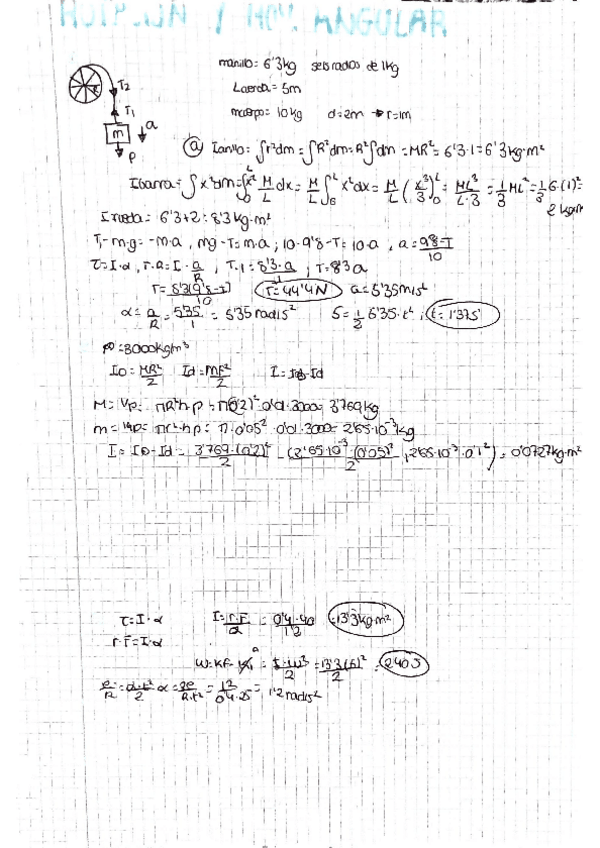 ANGULAR
manillo = 6'3kg seis radios de 1kg
Lcuerda = 5m
mcuerpo = 10kg d=2m → r=1m
T2
T1
a
m
P
ⓐ Ianillo = ∫r²dm = ∫R²dm = R²∫dm = MR² = 6'3·1 = 6'3 kg·m²
Ibarra = ∫x²dm = ∫₀ᴸ x² M/L dx = M/L ∫₀ᴸ x²dx = M/L (x³/3)₀ᴸ = ML³/L·3 = 1/3 ML² = 1/3 6·(1)² =
2 kg·m²
Irueda = 6'3+2 = 8'3 kg·m²
T₁-m·g = -m·a , mg-T = m·a ; 10·9'8-T = 10·a , a = 98-T/10
τ = I·α , r·T = I·a/R , T·1 = 8'3·a/1 ; T = 8'3a
T = 8'3(9'8-T)/10 T = 44'4N a = 5'35 m/s²
α = a/R = 5'35/1 = 5'35 rad/s² S = 1/2 5'35·t² ; t = 1'37s
ρ = 3000kg/m³
I0 = MR²/2 Id = mr²/2 I = I0-Id
M = Vρ = πR²h·ρ = π(0'2)²·0'01·3000 = 3'769kg
m = Vρ = πr²·h·ρ = π·0'05²·0'01·3000 = 2'65·10⁻³kg
I = I0-Id = 3'769·(0'2)²/2 - (2'65·10⁻³·(0'05)²/2 + 2'65·10⁻³·0'1²) = 0'0727kg·m²
τ = I·α I = r·F/α = 0'4·40/1'2 = 13'3kg·m²
r·F = I·α
W = KF - Ki = I·ω²/2 = 13'3(6)²/2 = 240J
e/R = α·t²/2 α = 2e/R·t² = 12/0'4·25 = 1'2 rad/s²